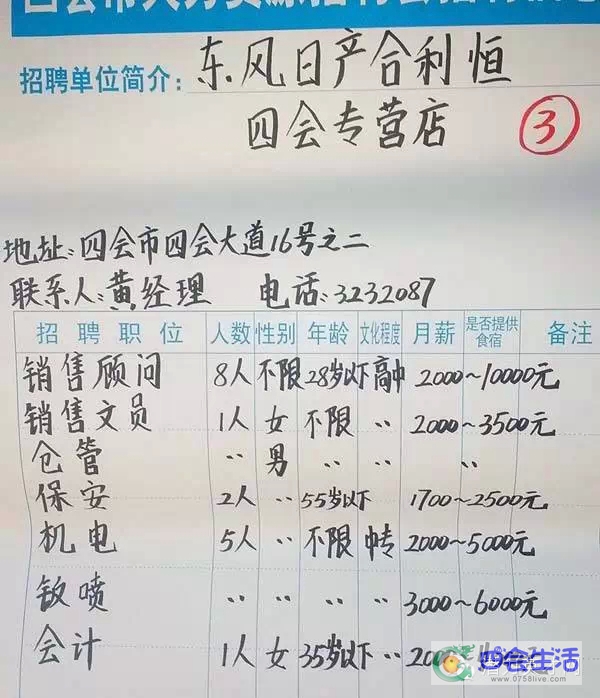 招聘单位简介: 东风日产合利恒
四会专营店
③
地址:四会市四会大道16号之二
联系人:黄经理 电话:3232087
招聘职位 人数 性别 年龄 文化程度 月薪 是否提供食宿 备注
销售顾问 8人 不限 28岁以下 高中 2000~10000元
销售文员 1人 女 不限 〃 2000~3500元
仓管 〃 男 〃 〃 〃
保安 2人 〃 55岁以下 1700~2500元
机电 5人 〃 不限 中专 2000~5000元
钣喷 〃 〃 〃 〃 3000~6000元
会计 1人 女 35岁以下 〃
四会生活
www.0758live.com